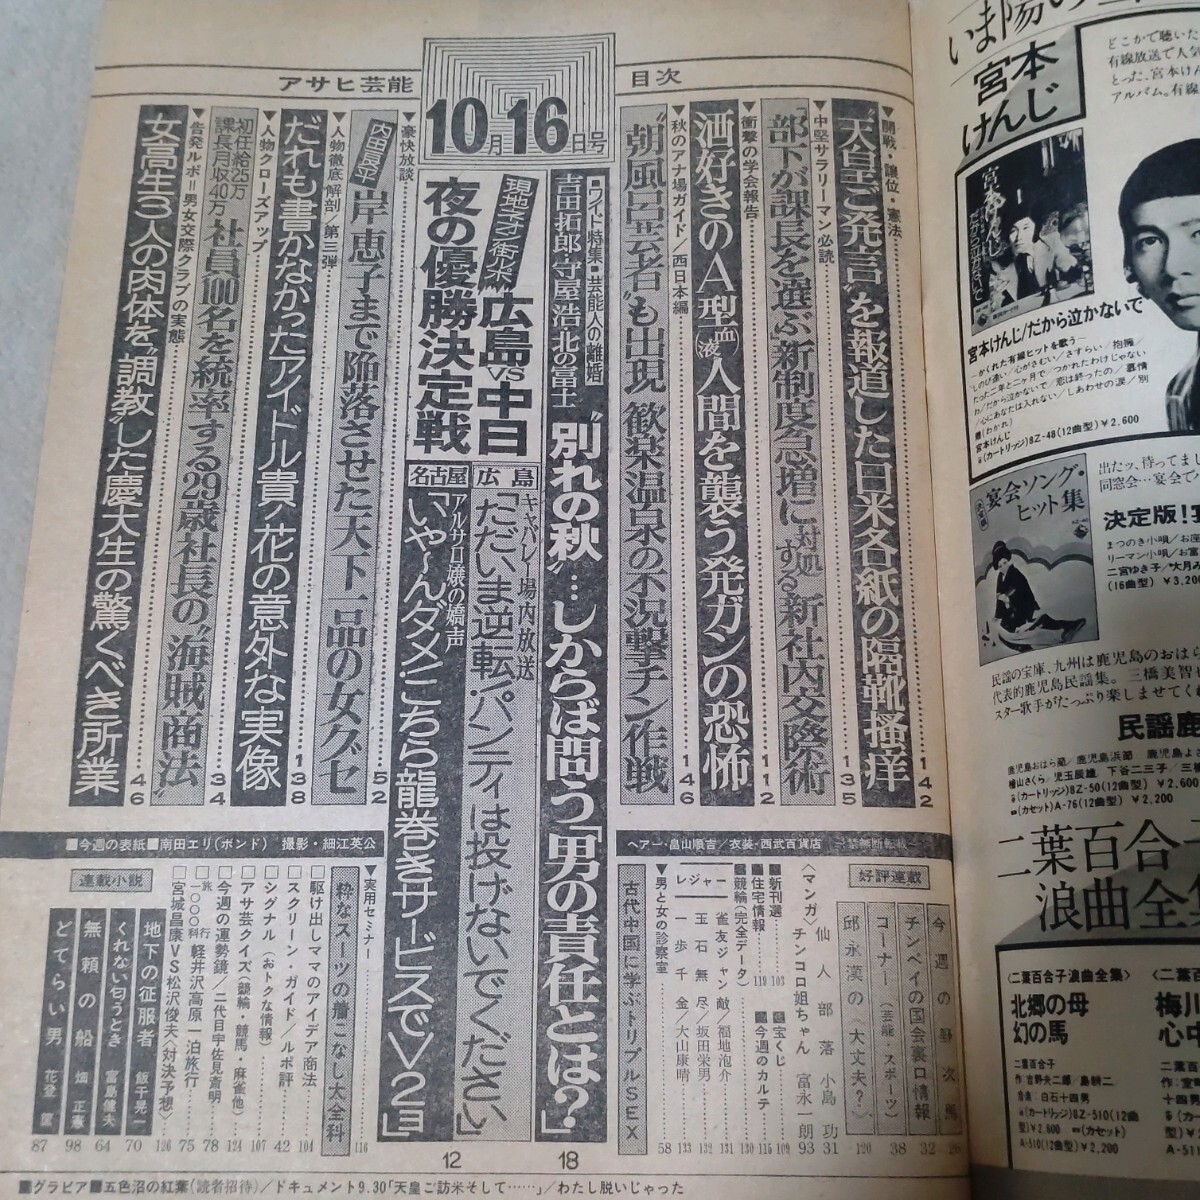 アサヒ芸能
10月16日号
目次
▼開戦・譲位・憲法
“天皇ご発言”を報道した日米各紙の隔靴掻痒
142
▼中堅サラリーマン必読
「部下が課長を選ぶ」新制度急増に対処する新社内交際術
135
▼衝撃の学会報告
酒好きのA型(血液)人間を襲う発ガンの恐怖
112
▼秋のアナ場ガイド/西日本編
“朝風呂芸者”も出現 歓楽温泉の不況撃チン作戦
146
ワイド特集 芸能人の離婚
吉田拓郎・守屋浩・北の富士
“別れの秋”…しからば問う「男の責任とは?」
18
現地ナマ街米
広島VS中日
夜の優勝決定戦
広島
キャバレー場内放送
「ただいま逆転・パンティは投げないでください」
名古屋
アルサロ嬢の嬌声
「いや～んダメ・こちら龍巻きサービスでV2ヨ」
12
▼豪快放談
内田良平
岸恵子まで陥落させた天下一品の女グセ
52
▼人物徹底解剖/第三弾
だれも書かなかったアイドル貴ノ花の意外な実像
138
▼人物クローズアップ
初任給25万
課長月収40万
社員100名を統率する29歳社長の“海賊商法”
34
▼告発ルポ=男女交際クラブの実態
女高生3人の肉体を“調教”した慶大生の驚くべき所業
46
■今週の表紙■南田エリ(ボンド) 撮影・細江英公
ヘアー・畠山順吉/衣装・西武百貨店 —禁無断転載—
好評連載
今週の野次馬 26
チンペイの国会裏口情報 32
コーナー(芸能・スポーツ) 38
邱永漢の《大丈夫?》 120
〈マンガ〉
仙人部落 小島功 31
チンコロ姐ちゃん 富永一朗 93
■新刊選 103
■宝くじ 109
■住宅情報 119
■今週のカルテ 115
■競輪(完全データ) 130
レジャー
雀友ジャン敵/福地泡介 131
玉石無尽/坂田栄男 132
一歩千金/大山康晴 133
▼男と女の診察室 58
古代中国に学ぶトリプルSEX
▼実用セミナー
粋なスーツの着こなし大全科 116
■駆け出しママのアイデア商法 104
■スクリーン・ガイド/ルポ評 42
■シグナル(おトクな情報) 107
■アサ芸クイズ(競輪・競馬・麻雀他) 124
■今週の運勢鏡/二代目宇佐見斎明 78
■旅行一〇〇〇科 軽井沢高原一泊旅行 75
■宮城昌康VS松沢俊夫〈対決予想〉 126
連載小説
地下の征服者 飯干晃一 70
くれない匂うとき 富島健夫 64
無頼の船 畑正憲 98
どてらい男 花登筐 87
■グラビア■五色沼の紅葉(読者招待)/ドキュメント9.30「天皇ご訪米そして……」/わたし脱いじゃった
宮本けんじ
どこかで聴いた
有線放送で人気
とった、宮本けんじ
アルバム。有線
宮本けんじ/だから泣かないで
—かくれた有線ヒットを歌う—
宮本けんじ
(カートリッジ)8Z-48(12曲型)¥2,600
宴会ソング・ヒット集
出たッ、待ってまし
同窓会…宴会で
決定版!
まつのき小唄/お座
リーマン小唄/お富
二宮ゆき子/大月み
(16曲型)¥3,200
民謡の宝庫、九州は鹿児島のおはら
代表的鹿児島民謡集。三橋美智
スター歌手がたっぷり楽しませてく
民謡鹿
鹿児島おはら節/鹿児島浜節 鹿児島よさ
檜山さくら/児玉辰雄 下谷二三子/三橋
(カートリッジ)8Z-50(12曲型)¥2,600
(カセット)A-76(12曲型)¥2,200
二葉百合子
浪曲全
〈二葉百合子浪曲全集〉
北郷の母
幻の馬
二葉百合子
作:吉野夫二郎/島耕二
音楽:白石十四男
(カートリッジ)8Z-510(12曲型)¥2,600
(カセット)A-510(12曲型)¥2,200
梅川
心中